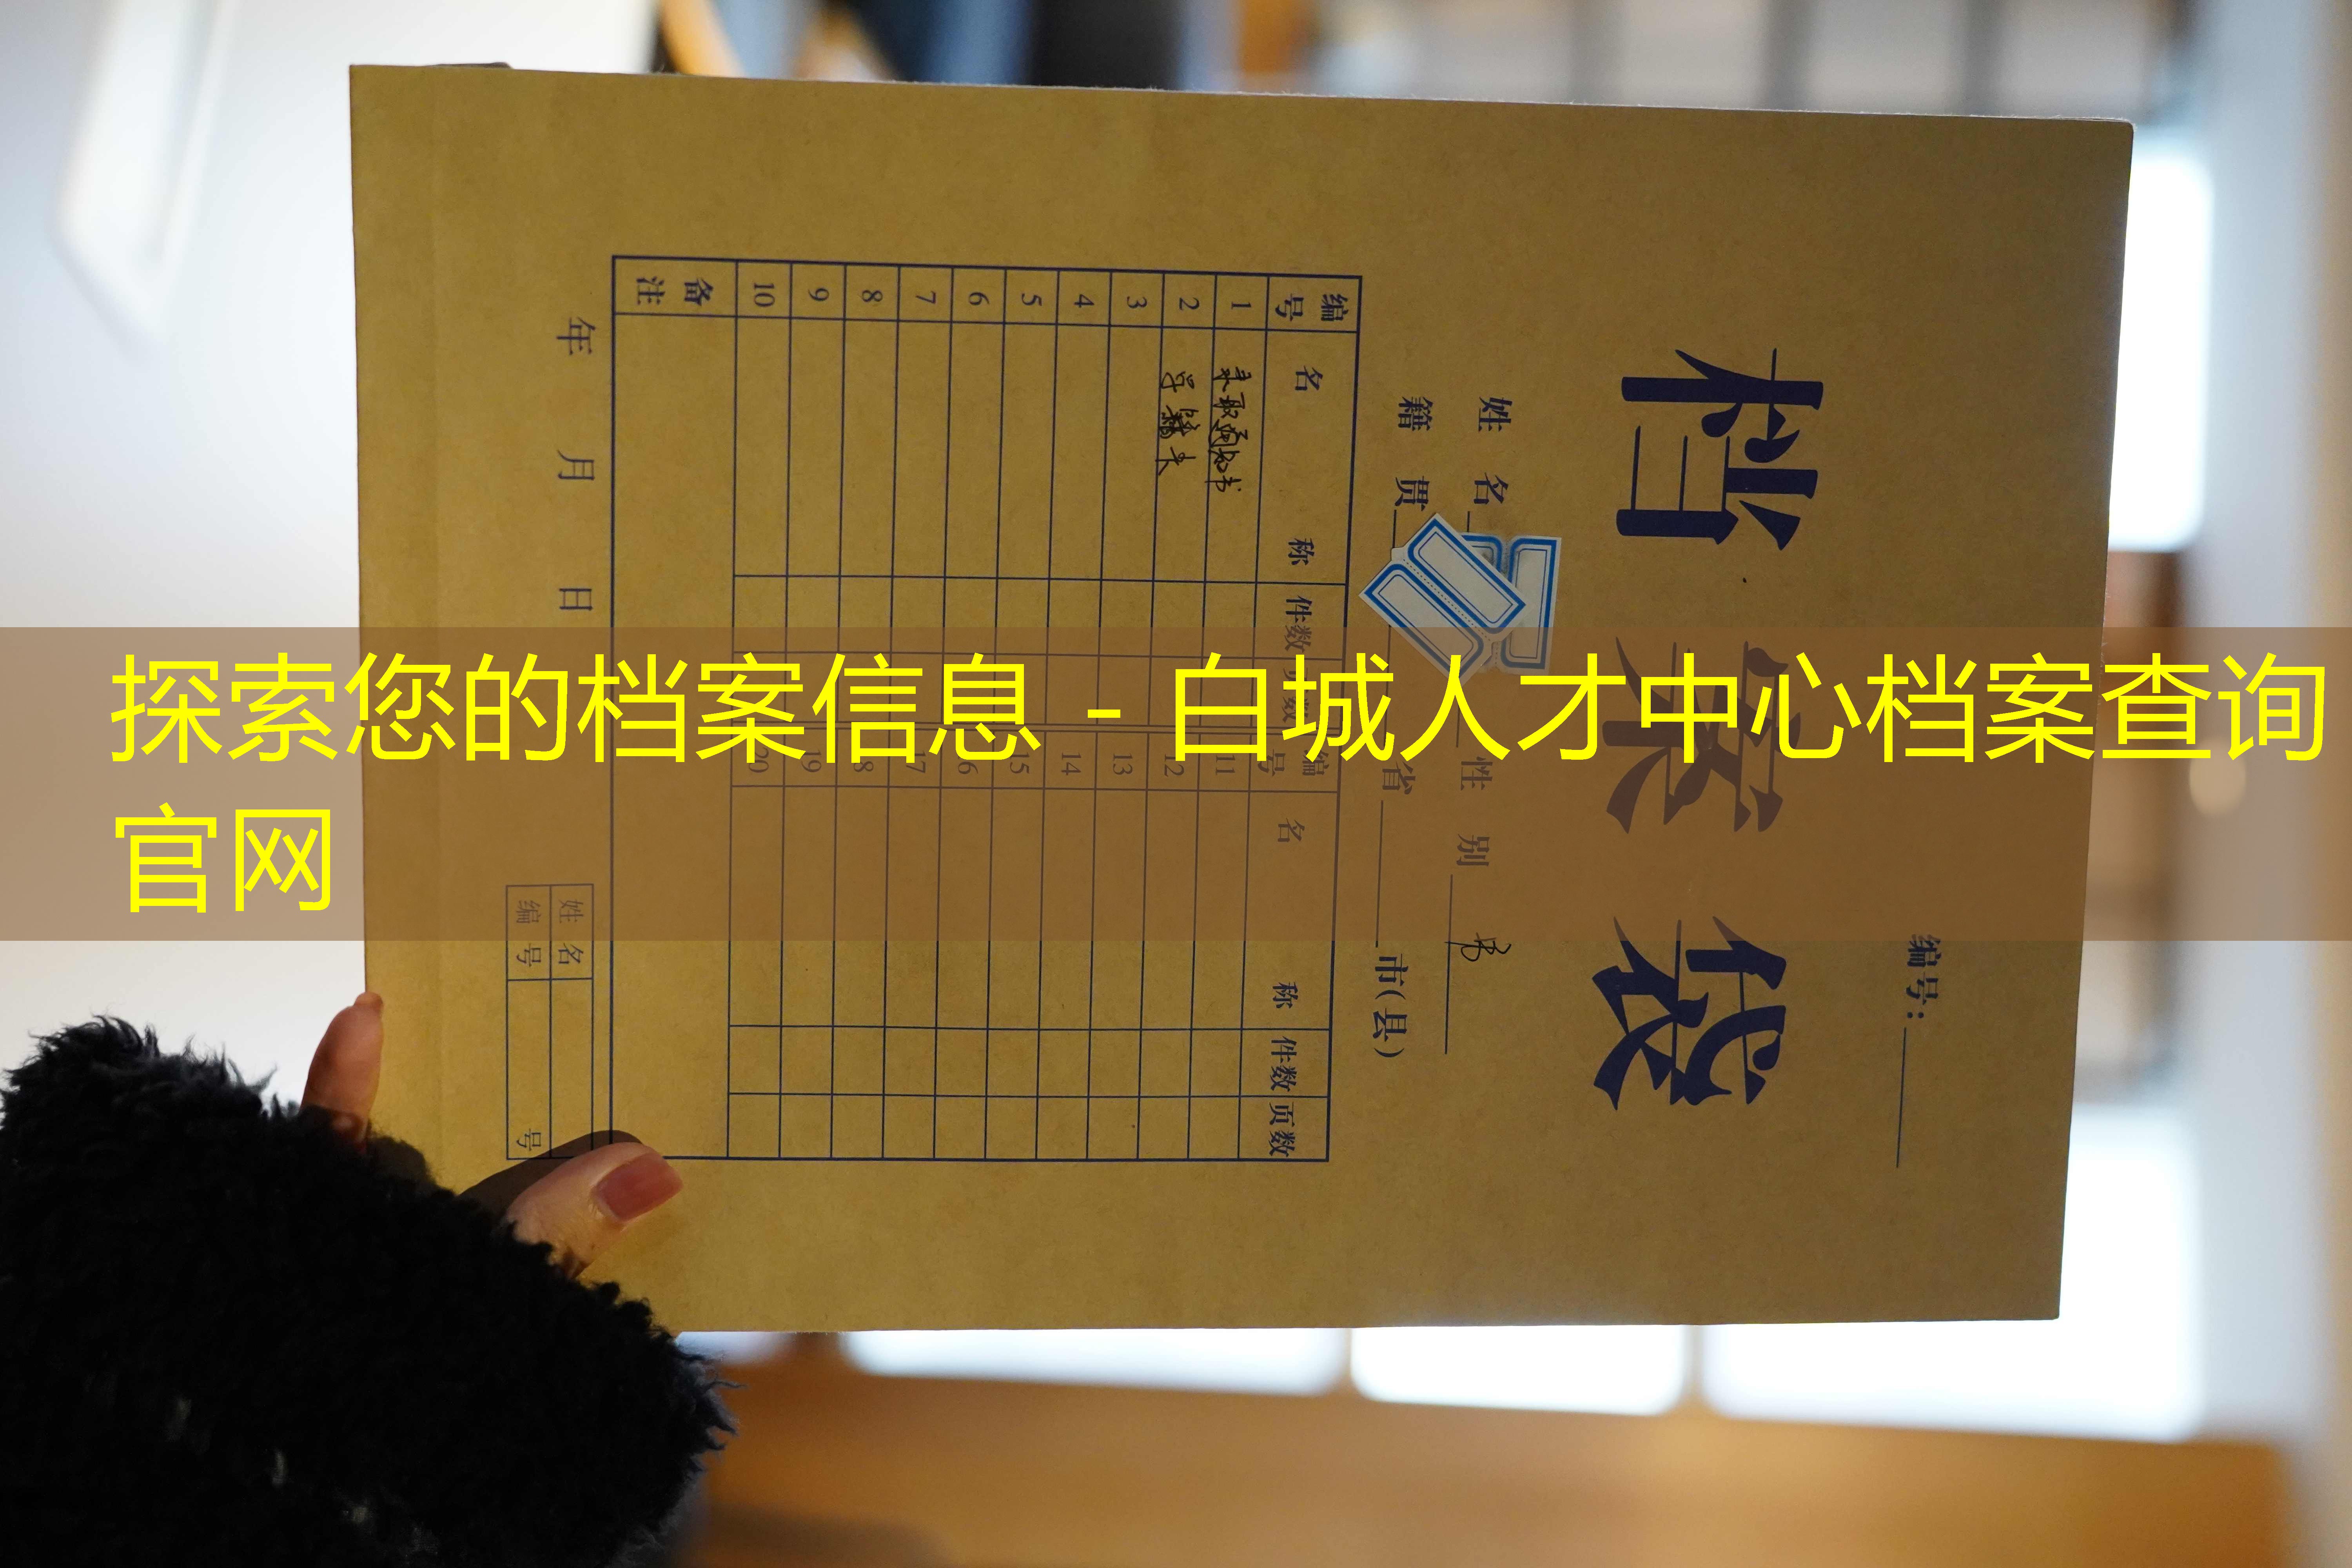 探索您的档案信息 - 白城人才中心档案查询
官网
编号:
档案袋
姓名 性别
籍贯 省 市(县)
编号 名称 件数 页数 编号 名称 件数 页数
1 录取通知书 11
2 12
3 13
4 14
5 15
6 16
7 17
8 18
9 19
10 20
备注
年 月 日
姓名
编号 号